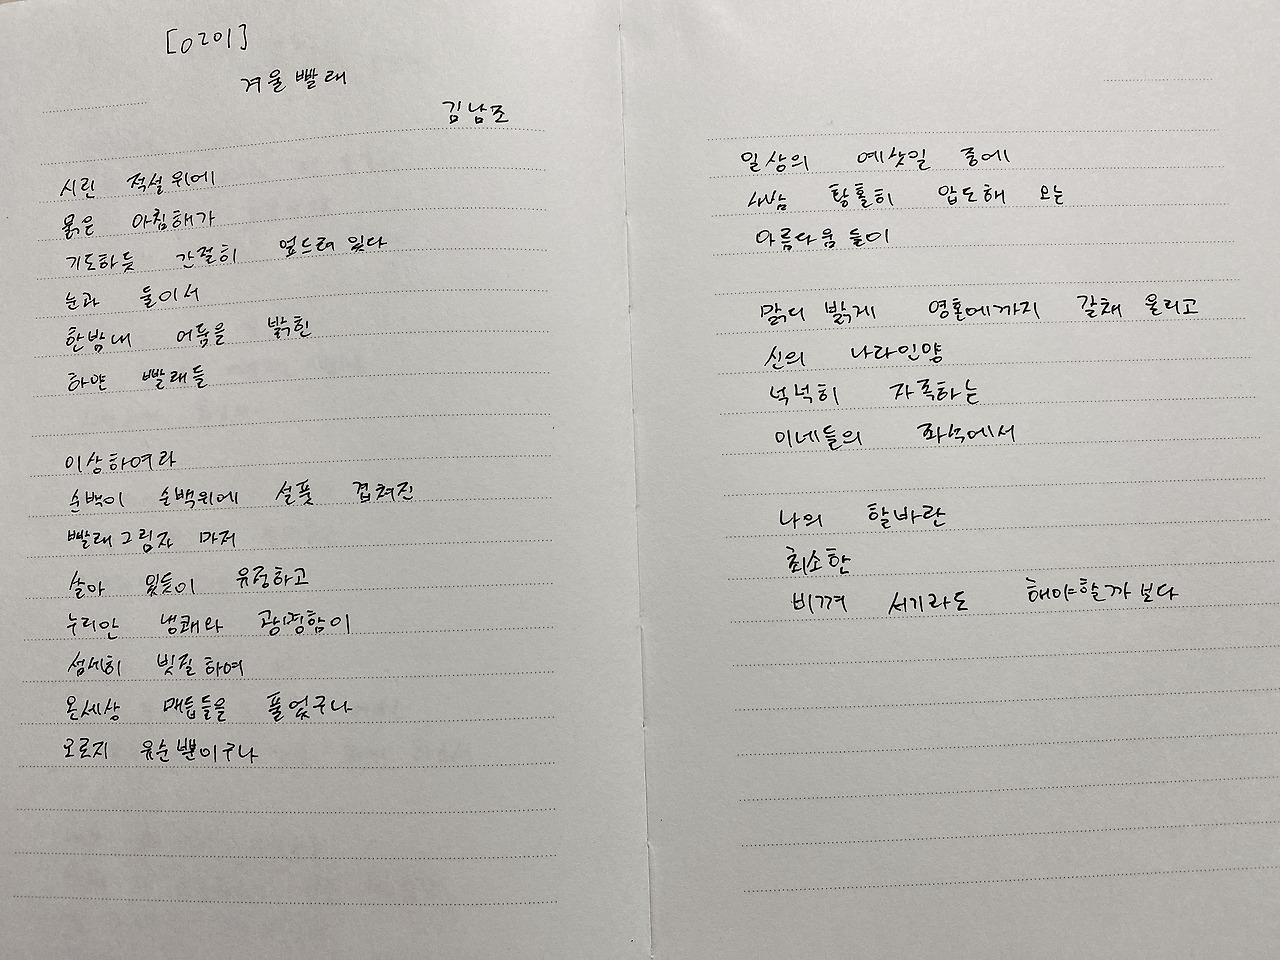 [0201]
겨울 빨래
김남조
시린 적설 위에
붉은 아침해가
기도하듯 간절히 엎드려 있다
눈과 둘이서
한밤내 어둠을 밝힌
하얀 빨래들
이상하여라
순백이 순백위에 설풋 겹쳐진
빨래 그림자 마저
살아 있듯이 유정하고
누리안 냉쾌와 광명함이
섬세히 빗질 하여
온세상 매듭들을 풀었구나
오로지 유순뿐이구나
일상의 예삿일 중에
사뭇 황홀히 압도해 오는
아름다움들이
맑디 밝게 영혼에까지 갈채 울리고
신의 나라인양
넉넉히 자족하는
이네들의 좌석에서
나의 할바란
최소한
비껴 서기라도 해야할까 보다